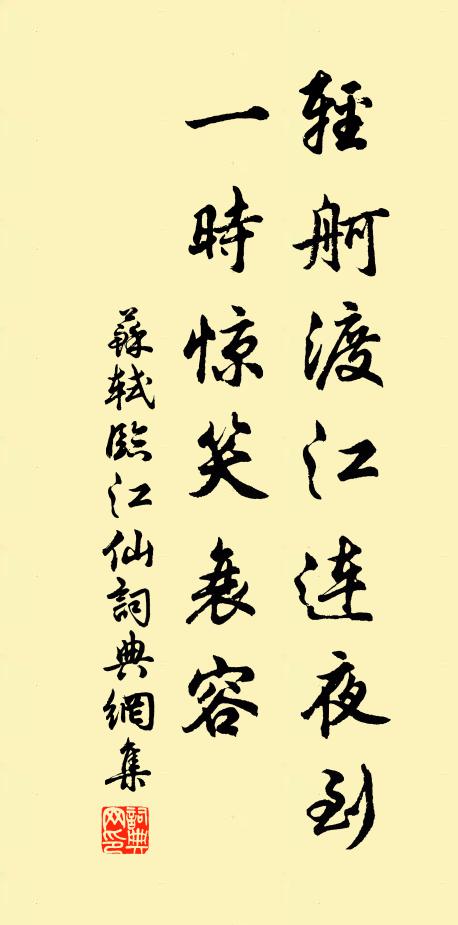 輕舸渡江連夜到
一時惊笑衰容
蘇軾臨江仙詞典網集
詞典網印